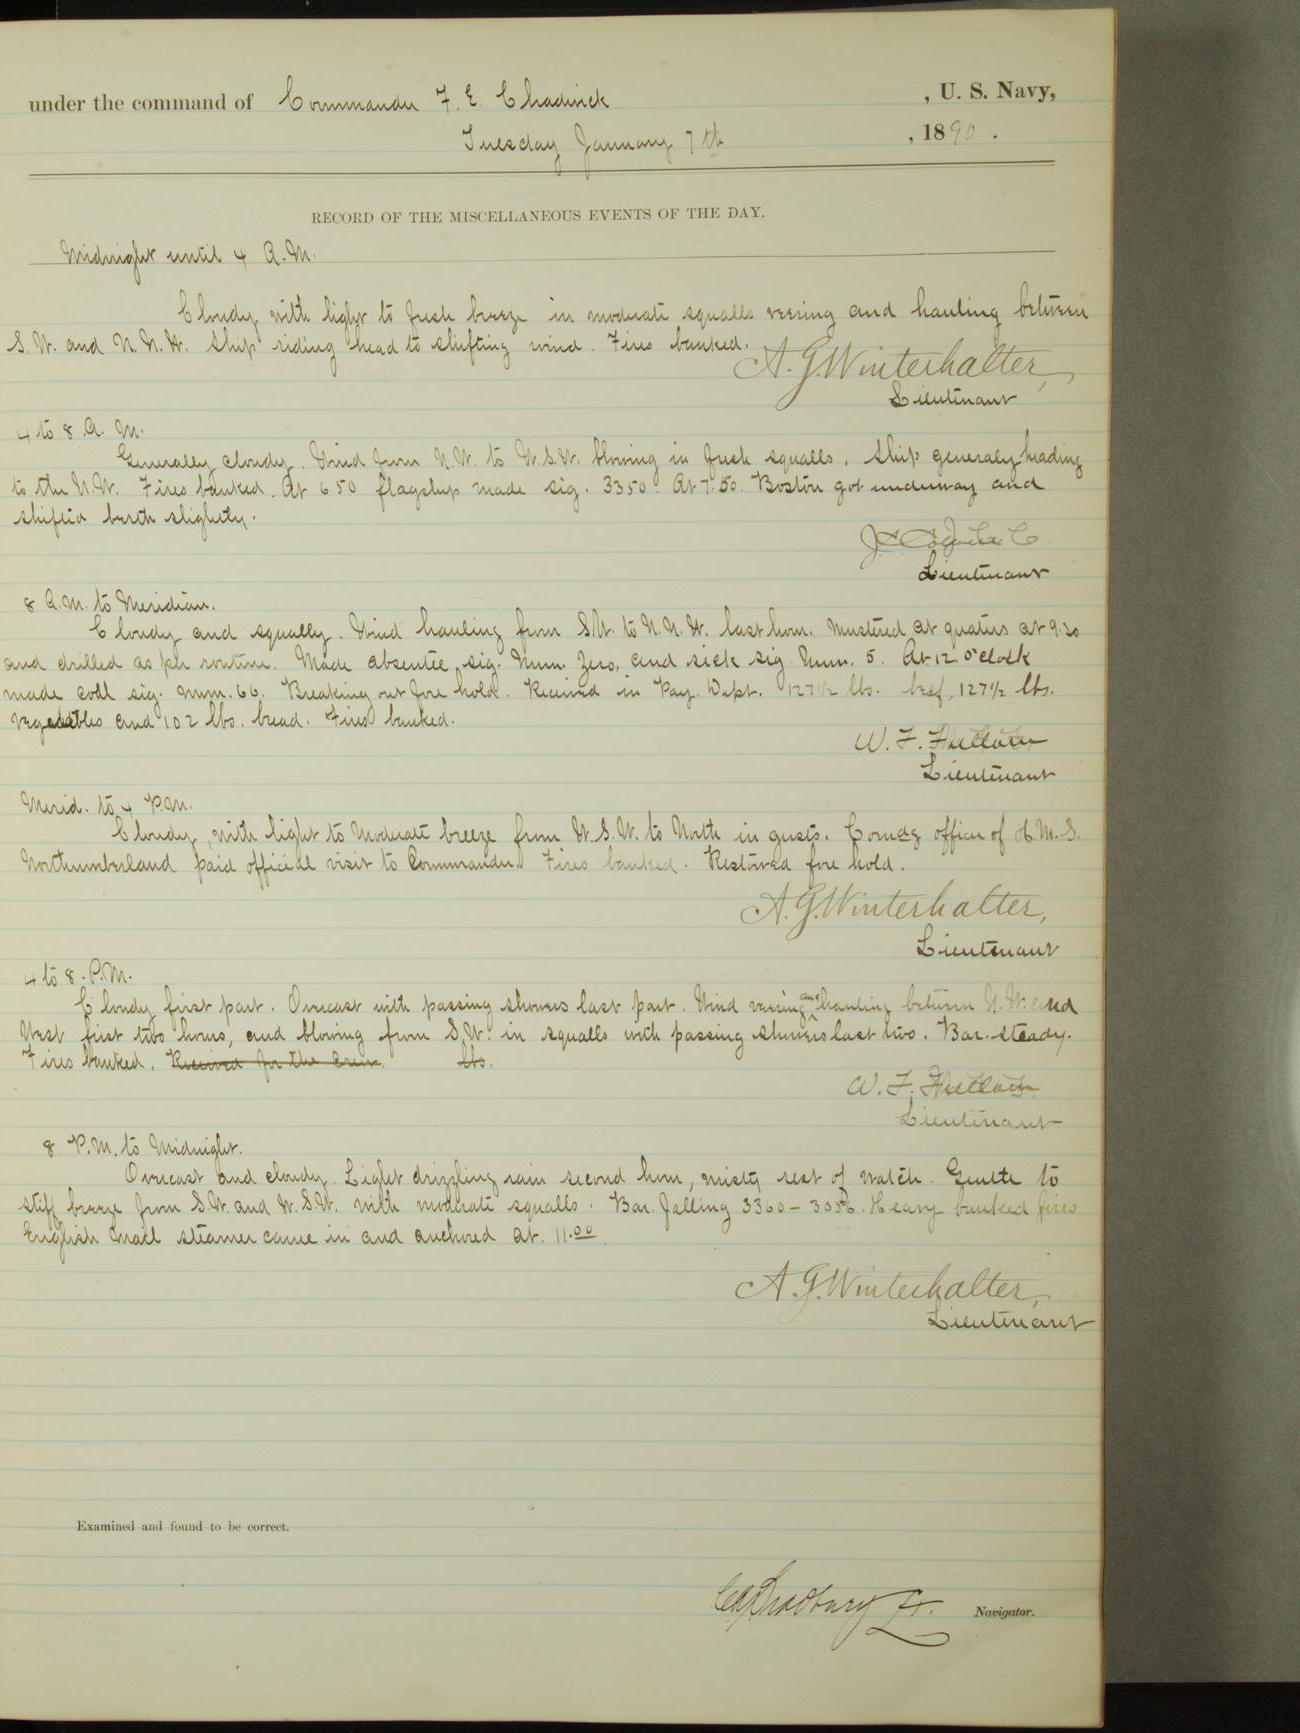 under the command of Commander F. E. Chadwick , U. S. Navy,
Tuesday January 7th , 1890 .
RECORD OF THE MISCELLANEOUS EVENTS OF THE DAY.
Midnight until 4 A.M.
Cloudy with light to fresh breeze in moderate squalls veering and hauling between
S.W. and N.N.W. Ship riding head to shifting wind. Fires banked.
A. G. Winterhalter,
Lieutenant
4 to 8 A. M.
Generally cloudy. Wind from N.W. to W.S.W. blowing in fresh squalls. Ship generally heading
to the N.W. Fires banked. At 6.50 flagship made sig. 3350. At 7.50 Boston got underway and
shifted berth slightly.
Lieutenant
8 A.M. to Meridian.
Cloudy and squally. Wind hauling from SW. to N.N.W. last hour. Mustered at quarters at 9.30
and drilled as per routine. Made absentee sig. Num. Zero, and sick sig. Num. 5. At 12 o'clock
made coal sig. num. 66. Breaking out fore hold. Received in Pay. Dept. 127½ lbs. beef, 127½ lbs.
vegetables and 102 lbs. bread. Fires banked.
W. F. Fullam
Lieutenant
Merid. to 4 P.M.
Cloudy, with light to moderate breeze from W.S.W. to North in gusts. Comdg officer of H.M.S.
Northumberland paid official visit to Commander. Fires banked. Restowed fore hold.
A. G. Winterhalter,
Lieutenant
4 to 8 P.M.
Cloudy first part. Overcast with passing showers last part. Wind veering and hauling between N.W. and
West first two hours, and blowing from S.W. in squalls with passing showers last two. Bar. steady.
Fires banked. Received for the crew lbs.
W. F. Fullam
Lieutenant
8 P.M. to Midnight.
Overcast and cloudy. Light drizzling rain second hour, misty rest of watch. Gentle to
stiff breeze from S.W. and W.S.W. with moderate squalls. Bar. falling 3360 - 3056. Heavy banked fires
English Mail steamer came in and anchored at 11.00
A. G. Winterhalter,
Lieutenant
Examined and found to be correct.
C. A. Bradbury Lt. Navigator.